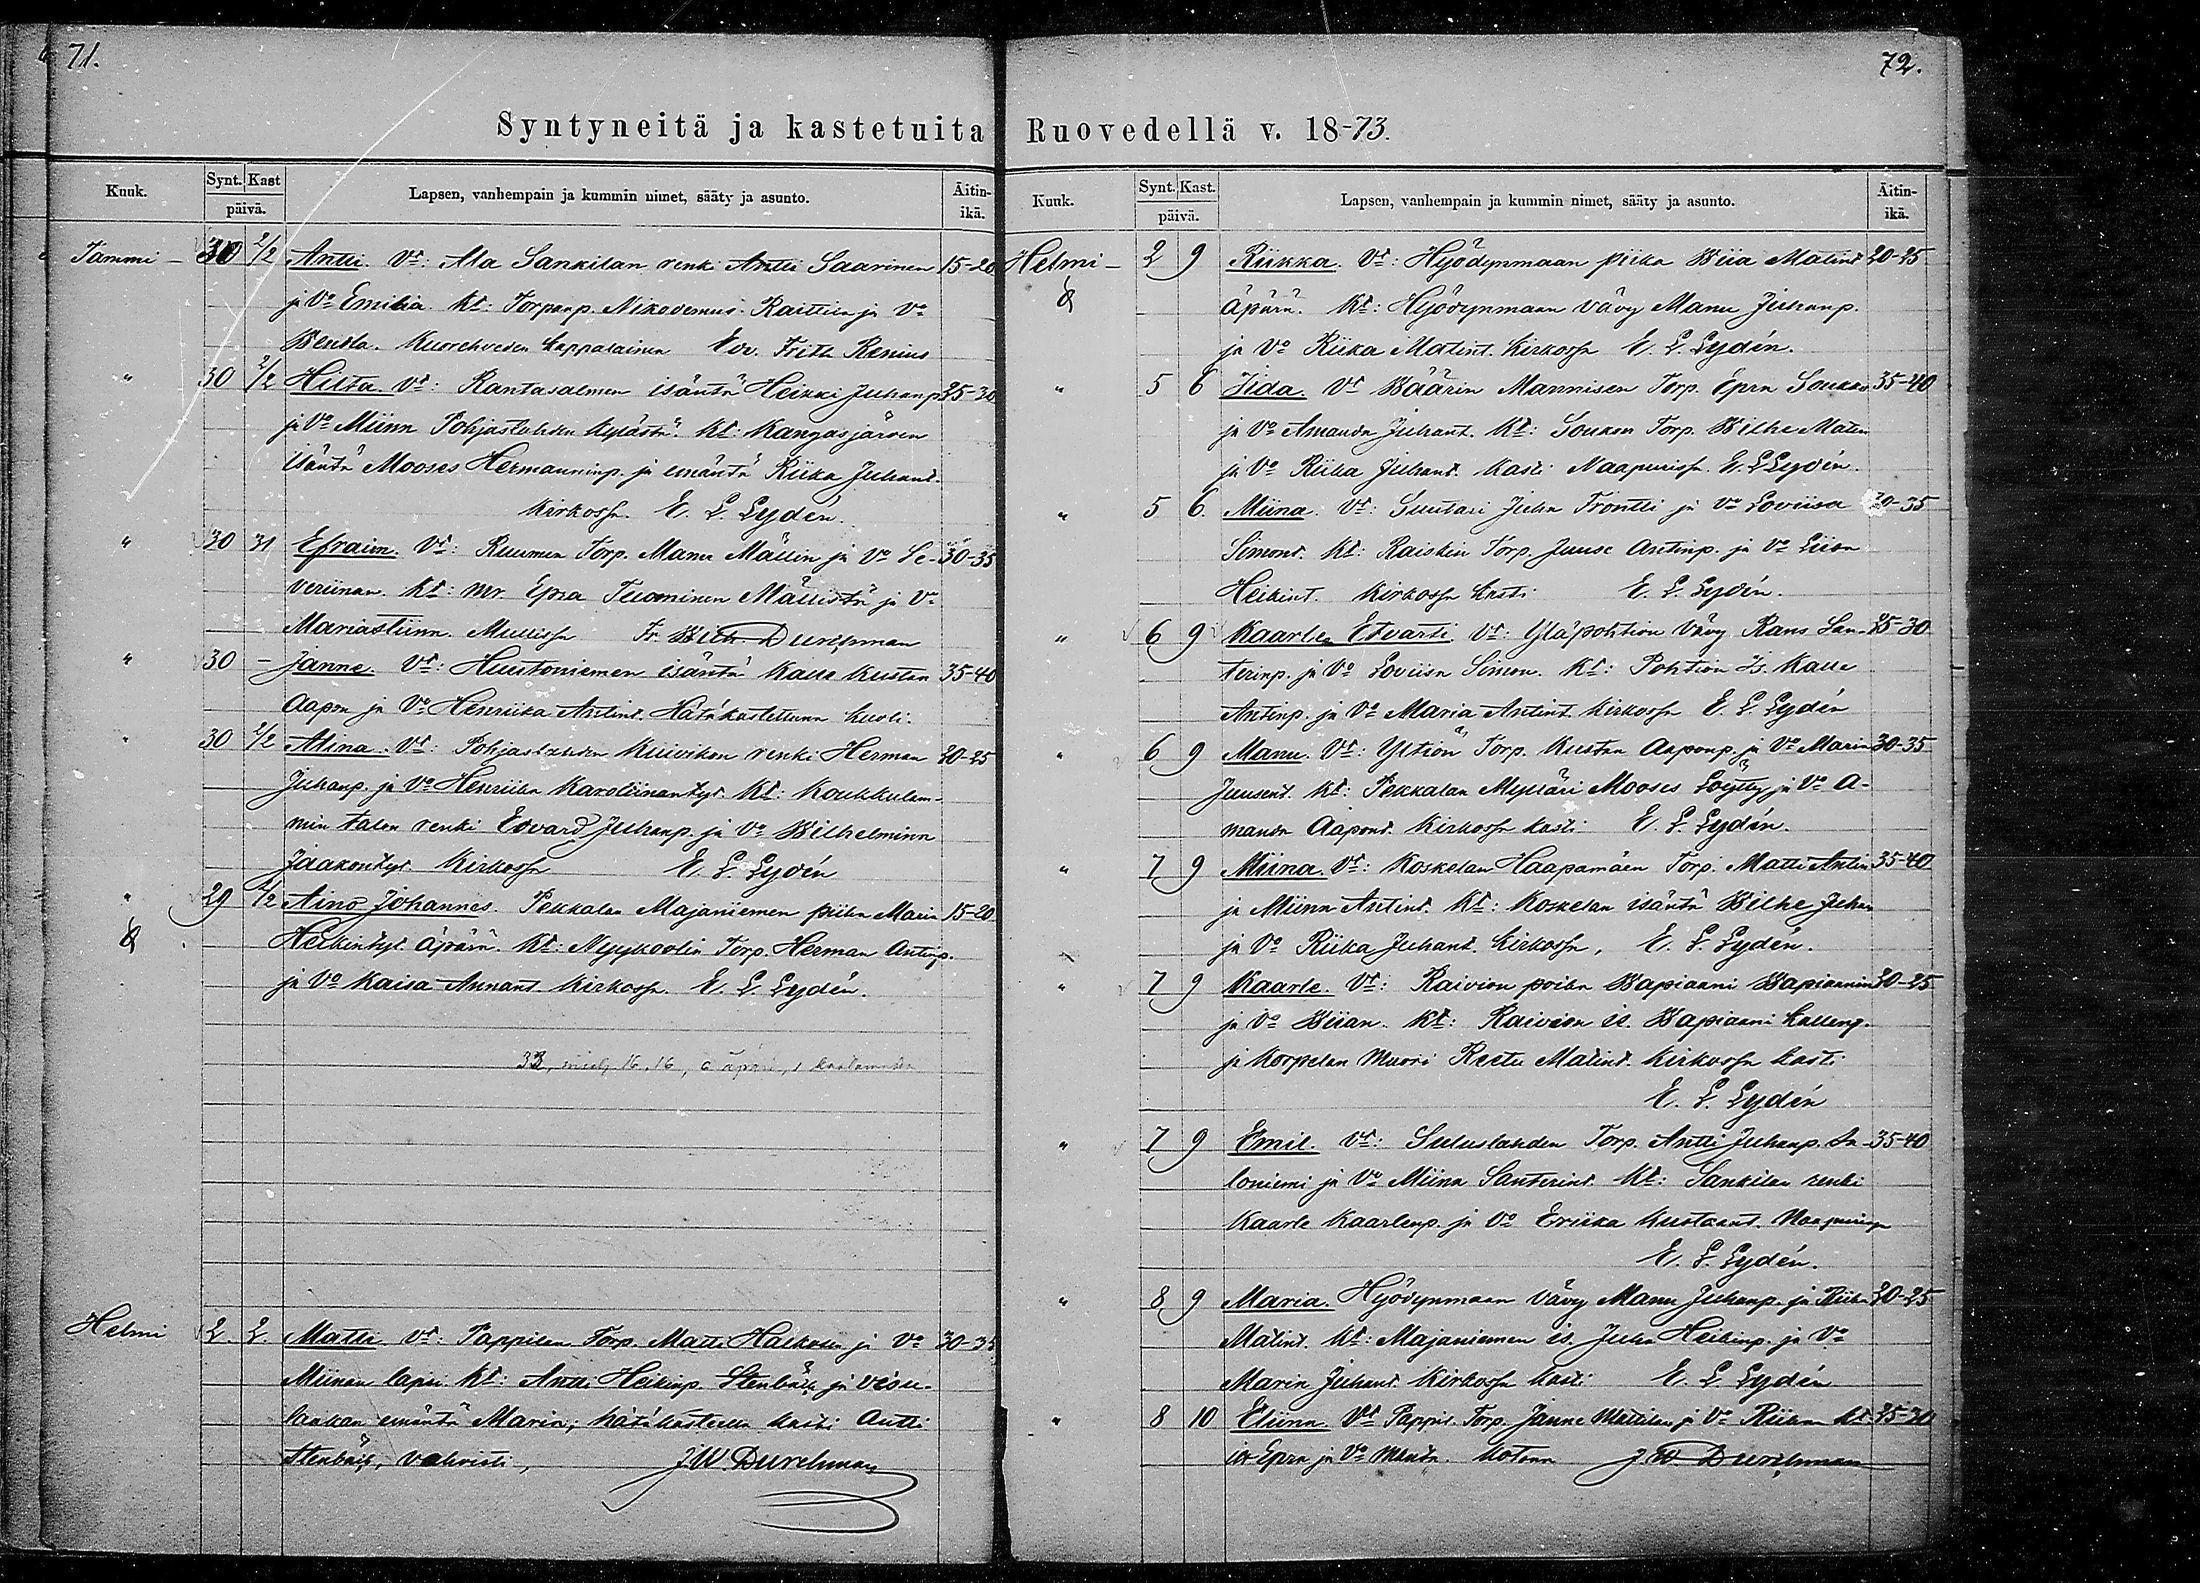 71.
Syntyneitä ja kastetuita
Kuuk. Synt. Kast päivä. Lapsen, vanhempain ja kummin nimet, sääty ja asunto. Äitin-ikä.
Tammi - 30 2/2 Antti. Vt: Ala Sankilan renki Antti Saarinen 15-20
ja Vo Emilia. Kt: Torpanp. Nikodemus Raittiin ja Vo
Kuorehveden kappalainen Edv. Frith. Renius
" 30 2/2 Hilta. Vt: Rantasalmen isäntä Heikki Juhanp. 25-30
ja Vo Miinn Pohjaslahden kylästä. Kt: Kangasjärven
isäntä Mooses Hermanninp. ja emäntä Riika Juhant.
Kirkossa. E. L. Lydén.
" 30 31 Efraim. Vt: Ruumen Torp. Manu Mällin ja Vo Se- 30-35
veriinan. Kt: Mr. Epra Tuominen Mällistä ja Vo
Mariastiina. Mullissa Fr. Wilh. Durchman
" 30 - Janne. Vt: Huutoniemen isäntä Kalle Kustan 35-40
Aapon ja Vo Henriika Antint. Hätäkastettunn kuoli.
" 30 2/2 Alina. Vt: Pohjaslahden Kuivikon renki Herman 20-25
Juhanp. ja Vo Henriika Karoliinantyt. Kt: Koukkulam-
min talon renki Edvard Juhanp. ja Vo Wilhelmina
Jaakontyt. Kirkossa E. L. Lydén
" 29 2/2 Aino Johannes. Pekkalan Majaniemen piika Maria 15-20
Heikintyt. äpärä. Kt: Myykoolin Torp. Herman Antinp.
ja Vo Kaisa Annant. Kirkossa. E. L. Lydén.
Helmi 2. 2. Matti. Vt: Pappilan Torp. Matti Halkosen ja Vo 30-35
Miinan lapsi. Kt: Antti Heikinp. Stenbäck ja Visu-
lankan emäntä Maria; hätäkasteen kasti Antti
Stenbäck, vahvisti, J. W. Durchman
72.
Ruovedellä v. 18-73.
Kuuk. Synt. Kast. päivä. Lapsen, vanhempain ja kummin nimet, sääty ja asunto. Äitin-ikä.
Helmi - 2 9 Riikka. Vt: Hyödynmaan piika Wiia Matint. 20-25
äpärä. Kt: Hyödynmaan vävy Manu Juhanp.
ja Vo Riika Matint. Kirkossa E. L. Lydén.
" 5 6 Iida. Vt Väärin Mannisen Torp. Epra Soukko 35-40
ja Vo Amanda Juhant. Kt: Soukon Torp. Wilhe Maten
ja Vo Riika Juhant. Kasti Naapurissa. E. L. Lydén.
" 5 6. Miina. Vt: Suutari Juha Frontti ja Vo Loviisa 30-35
Simont. Kt: Raiskin Torp. Juuse Antinp. ja Vo Liisa
Heikint. Kirkossa kasti E. L. Lydén.
" 6 9 Kaarle Edvarti Vt: Yläpohtion Vävy Rans San- 25-30
terinp. ja Vo Loviisa Simon. Kt: Pohtion Is. Kalle
Antinp. ja Vo Maria Antint. Kirkossa E. L. Lydén
" 6 9 Manu. Vt: Yltiön Torp. Kustaa Aaponp. ja Vo Maria 30-35
Juusent. Kt: Pekkalan Mylläri Mooses Löytty ja Vo A-
manda Aapont. Kirkossa kasti E. L. Lydén.
" 7 9 Miina. Vt: Koskelan Haapamäen Torp. Matti Antin 35-40
ja Miina Antint. Kt: Koskelan isäntä Wilhe Juhan
ja Vo Riika Juhant. Kirkossa, E. L. Lydén.
" 7 9 Kaarle. Vt: Raivion poika Wapiaani Wapiaanin 20-25
ja Vo Wiian. Kt: Raivion is. Wapiaani Kallenp.
ja Korpelan Muori Reetu Matint. Kirkossa kasti
E. L. Lydén
" 7 9 Emil. Vt: Suluslahden Torp. Antti Juhanp. Sa- 35-40
loniemi ja Vo Miina Santerint. Kt: Sankilan renki
Kaarle Kaarlenp. ja Vo Eriika Kustaant. Naapurissa
E. L. Lydén.
" 8 9 Maria. Hyödynmaan Vävy Manu Juhanp. ja Riika 20-25
Matint. Kt: Majaniemen is. Juha Heikinp. ja Vo
Maria Juhant. Kirkossa kasti E. L. Lydén
" 8 10 Eliina. Vt Pappil. Torp. Janne Mattilan ja Vo Riika Kt 25-30
Epra ja Vo Manda. Kotona J. W. Durchman